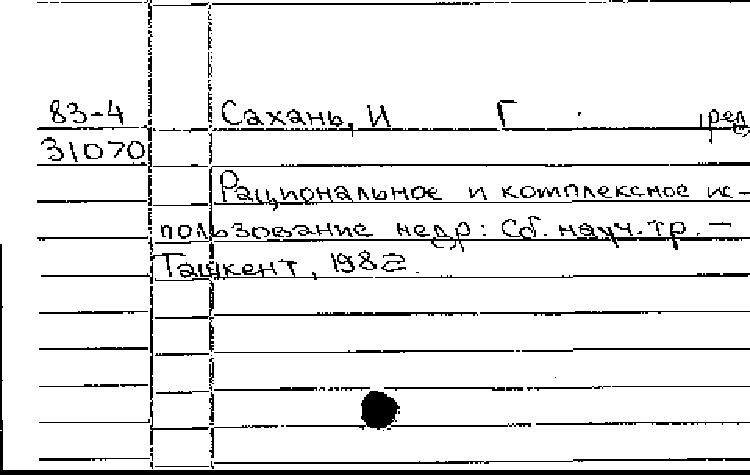 83-4 Сахань, И Г. ред
31070
Рациональное и комплексное ис-
пользование недр: Сб. науч. тр. –
Ташкент, 1982.